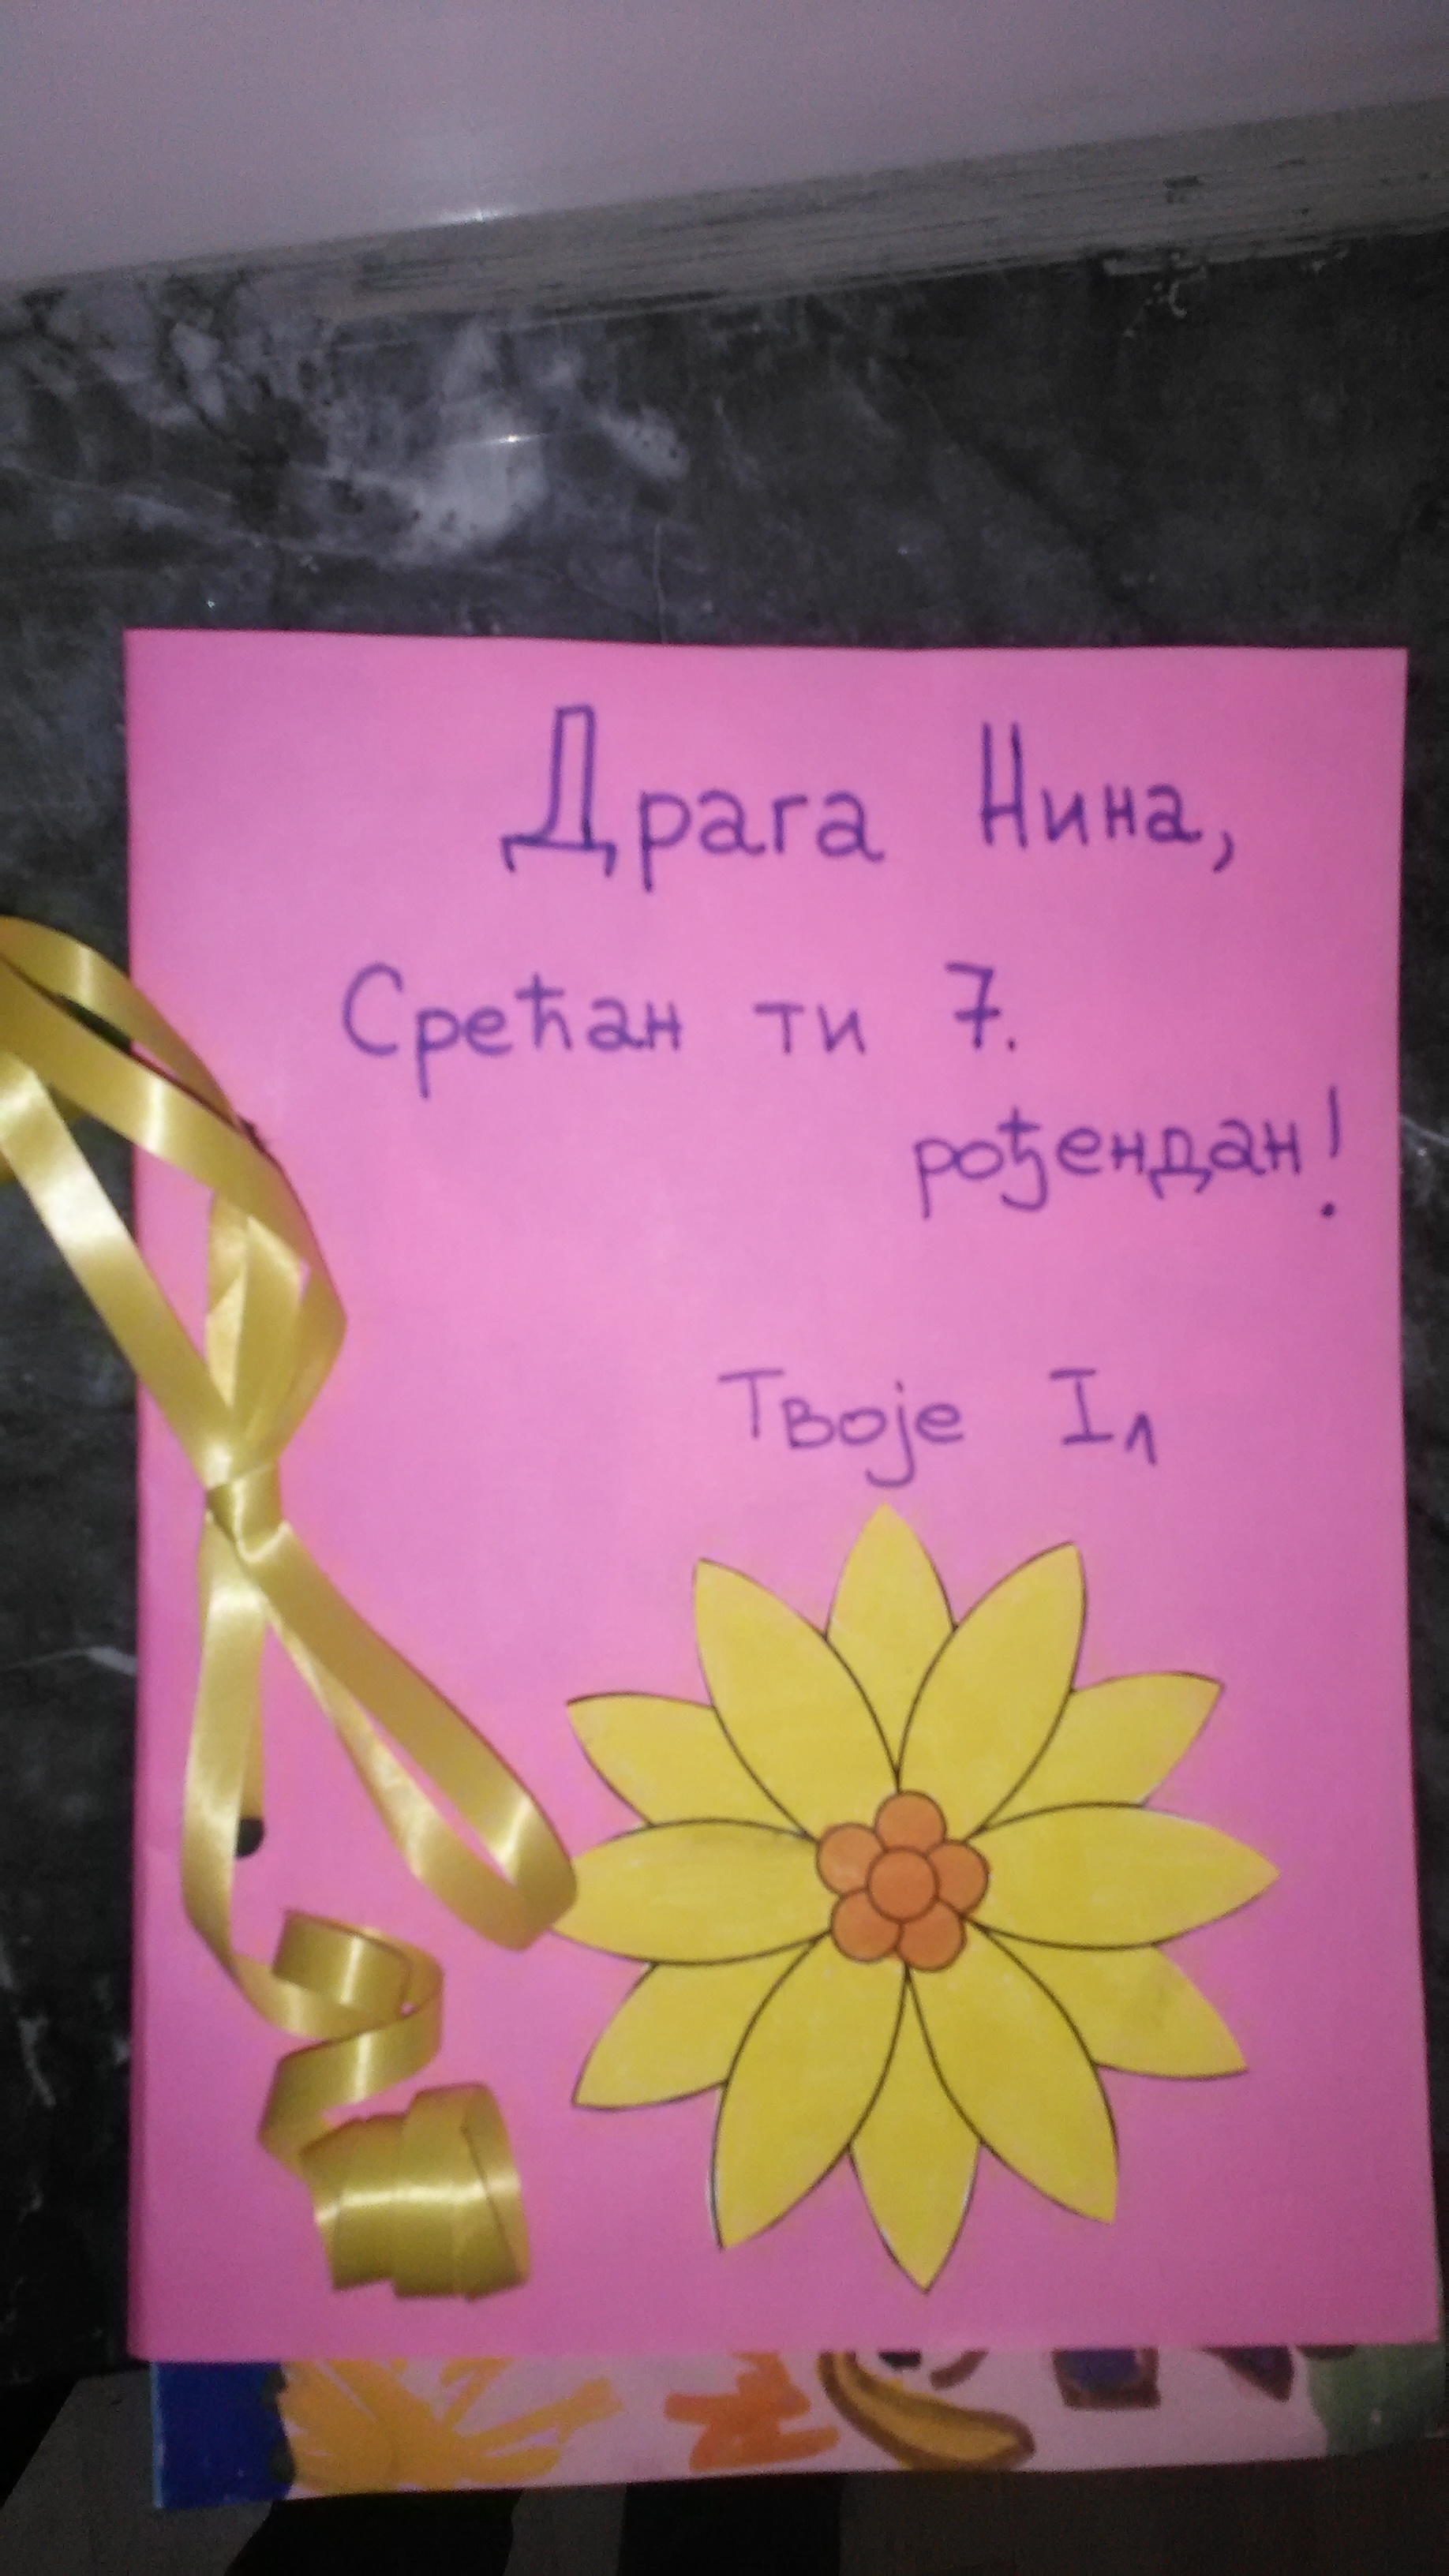 Драга Нина,
Срећан ти 7.
рођендан!
Твоје I₁